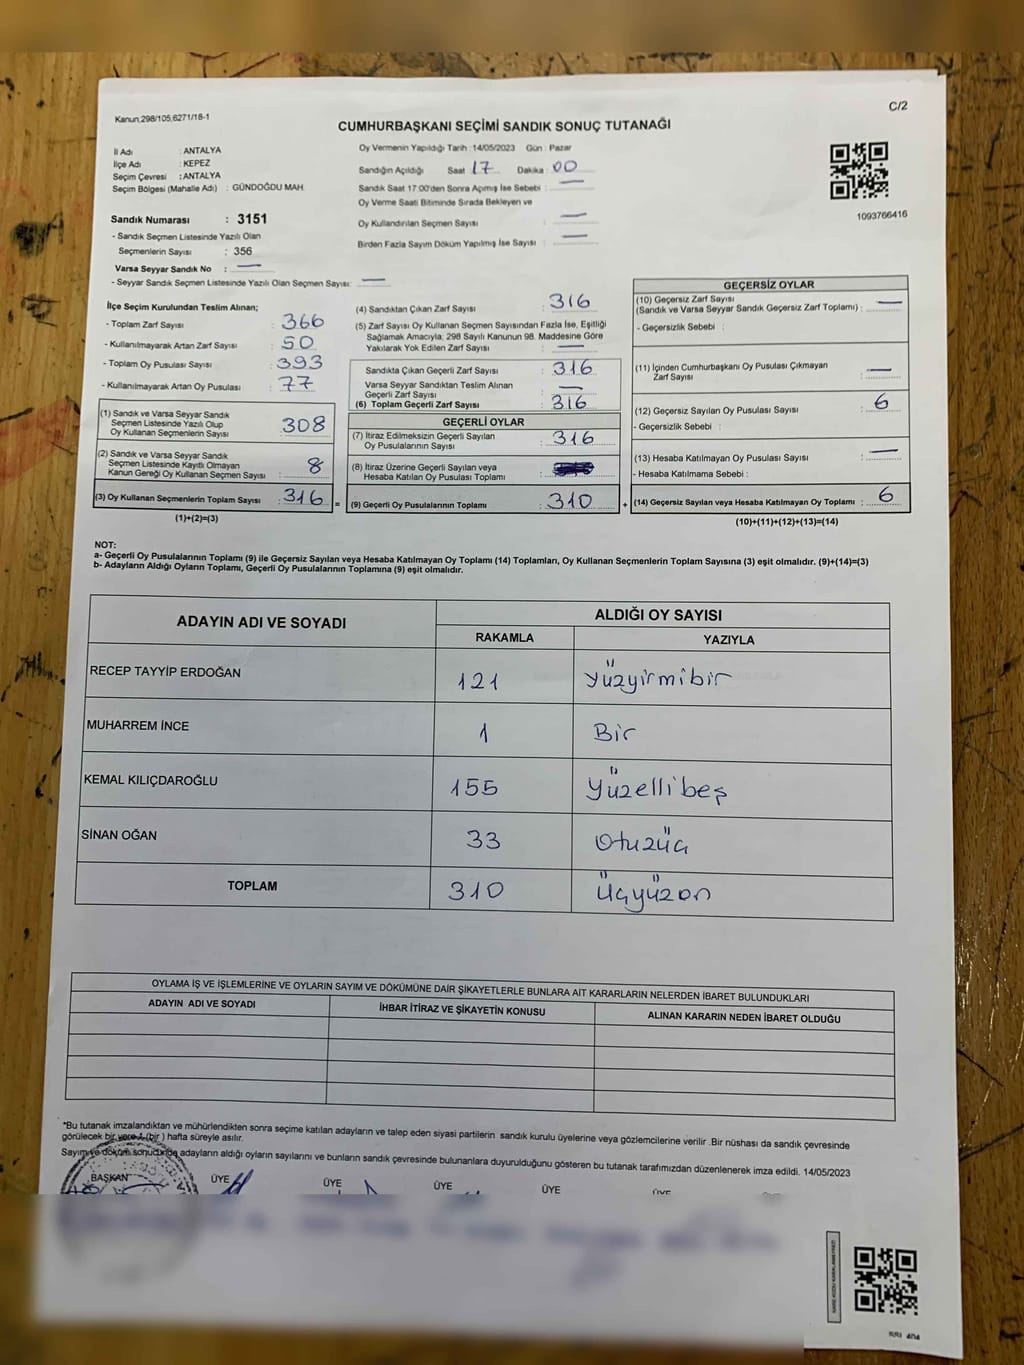 C/2
Kanun,298/105,6271/18-1
CUMHURBAŞKANI SEÇİMİ SANDIK SONUÇ TUTANAĞI
İl Adı : ANTALYA
İlçe Adı : KEPEZ
Seçim Çevresi : ANTALYA
Seçim Bölgesi (Mahalle Adı) : GÜNDOĞDU MAH.
Sandık Numarası : 3151
- Sandık Seçmen Listesinde Yazılı Olan
Seçmenlerin Sayısı : 356
Varsa Seyyar Sandık No : —
- Seyyar Sandık Seçmen Listesinde Yazılı Olan Seçmen Sayısı: —
Oy Vermenin Yapıldığı Tarih : 14/05/2023 Gün : Pazar
Sandığın Açıldığı Saat 17 Dakika : 00
Sandık Saat 17:00'den Sonra Açımış İse Sebebi : —
Oy Verme Saati Bitiminde Sırada Bekleyen ve
Oy Kullandırılan Seçmen Sayısı : —
Birden Fazla Sayım Döküm Yapılmış İse Sayısı : —
1093766416
İlçe Seçim Kurulundan Teslim Alınan;
- Toplam Zarf Sayısı : 366
- Kullanılmayarak Artan Zarf Sayısı : 50
- Toplam Oy Pusulası Sayısı : 393
- Kullanılmayarak Artan Oy Pusulası : 77
(1) Sandık ve Varsa Seyyar Sandık
Seçmen Listesinde Yazılı Olup
Oy Kullanan Seçmenlerin Sayısı : 308
(2) Sandık ve Varsa Seyyar Sandık
Seçmen Listesinde Kayıtlı Olmayan
Kanun Gereği Oy Kullanan Seçmen Sayısı : 8
(3) Oy Kullanan Seçmenlerin Toplam Sayısı : 316 =
(1)+(2)=(3)
(4) Sandıktan Çıkan Zarf Sayısı : 316
(5) Zarf Sayısı Oy Kullanan Seçmen Sayısından Fazla İse, Eşitliği
Sağlamak Amacıyla; 298 Sayılı Kanunun 98. Maddesine Göre
Yakılarak Yok Edilen Zarf Sayısı : —
Sandıkta Çıkan Geçerli Zarf Sayısı : 316
Varsa Seyyar Sandıktan Teslim Alınan
Geçerli Zarf Sayısı : —
(6) Toplam Geçerli Zarf Sayısı : 316
GEÇERLİ OYLAR
(7) İtiraz Edilmeksizin Geçerli Sayılan
Oy Pusulalarının Sayısı : 316
(8) İtiraz Üzerine Geçerli Sayılan veya
Hesaba Katılan Oy Pusulası Toplamı :
(9) Geçerli Oy Pusulalarının Toplamı : 310 +
GEÇERSİZ OYLAR
(10) Geçersiz Zarf Sayısı
(Sandık ve Varsa Seyyar Sandık Geçersiz Zarf Toplamı) : —
- Geçersizlik Sebebi :
(11) İçinden Cumhurbaşkanı Oy Pusulası Çıkmayan
Zarf Sayısı : —
(12) Geçersiz Sayılan Oy Pusulası Sayısı : 6
- Geçersizlik Sebebi :
(13) Hesaba Katılmayan Oy Pusulası Sayısı : —
- Hesaba Katılmama Sebebi :
(14) Geçersiz Sayılan veya Hesaba Katılmayan Oy Toplamı : 6
(10)+(11)+(12)+(13)=(14)
NOT:
a- Geçerli Oy Pusulalarının Toplamı (9) ile Geçersiz Sayılan veya Hesaba Katılmayan Oy Toplamı (14) Toplamları, Oy Kullanan Seçmenlerin Toplam Sayısına (3) eşit olmalıdır. (9)+(14)=(3)
b- Adayların Aldığı Oyların Toplamı, Geçerli Oy Pusulalarının Toplamına (9) eşit olmalıdır.
ADAYIN ADI VE SOYADI ALDIĞI OY SAYISI
RAKAMLA YAZIYLA
RECEP TAYYİP ERDOĞAN 121 Yüzyirmibir
MUHARREM İNCE 1 Bir
KEMAL KILIÇDAROĞLU 155 Yüzellibeş
SİNAN OĞAN 33 Otuzüç
TOPLAM 310 Üçyüzon
OYLAMA İŞ VE İŞLEMLERİNE VE OYLARIN SAYIM VE DÖKÜMÜNE DAİR ŞİKAYETLERLE BUNLARA AİT KARARLARIN NELERDEN İBARET BULUNDUKLARI
ADAYIN ADI VE SOYADI İHBAR İTİRAZ VE ŞİKAYETİN KONUSU ALINAN KARARIN NEDEN İBARET OLDUĞU
*Bu tutanak imzalandıktan ve mühürlendikten sonra seçime katılan adayların ve talep eden siyasi partilerin sandık kurulu üyelerine veya gözlemcilerine verilir .Bir nüshası da sandık çevresinde
görülecek bir yere 1 (bir ) hafta süreyle asılır.
Sayım ve döküm sonucunda adayların aldığı oyların sayılarını ve bunların sandık çevresinde bulunanlara duyurulduğunu gösteren bu tutanak tarafımızdan düzenlenerek imza edildi. 14/05/2023
BAŞKAN ÜYE ÜYE ÜYE ÜYE